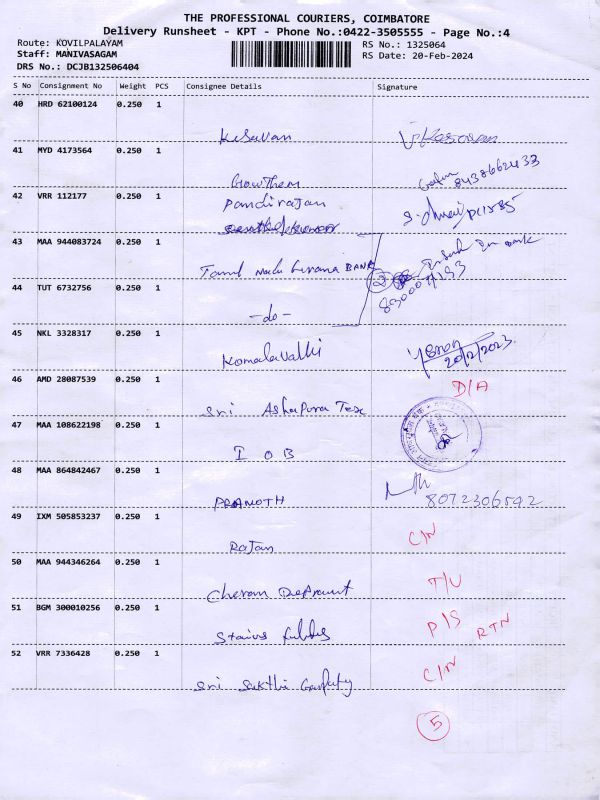 THE PROFESSIONAL COURIERS, COIMBATORE
Delivery Runsheet - KPT - Phone No.:0422-3505555 - Page No.:4
Route: KOVILPALAYAM
RS No.: 1325064
Staff: MANIVASAGAM
RS Date: 20-Feb-2024
DRS No.: DCJB132506404
S No Consignment No Weight PCS Consignee Details Signature
40 HRD 62100124 0.250 1
Kesavan
41 MYD 4173564 0.250 1
8438662433
Gowthem
42 VRR 112177 0.250 1
Pandirajan
43 MAA 944083724 0.250 1
Tamil Nadu Grama BANK
2
44 TUT 6732756 0.250 1
-do-
45 NKL 3328317 0.250 1
Komalavalli
20/2/2023
46 AMD 28087539 0.250 1
D/A
Sri Ashapura Tex
47 MAA 108622198 0.250 1
I O B
48 MAA 864842467 0.250 1
PRANOTH 8072306542
49 IXM 505853237 0.250 1
Rajan C/N
50 MAA 944346264 0.250 1
T/U
Cheran
51 BGM 300010256 0.250 1
P/S RTN
52 VRR 7336428 0.250 1
C/N
Sri Sakthi
5